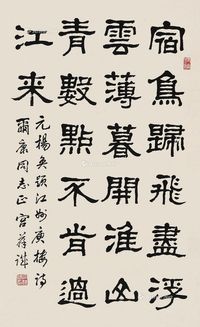 宿鳥歸飛盡浮
雲薄暮開淮山
青數點不肯過
江来
元楊奐題江州庾樓詩
爾康同志正宮葆誠